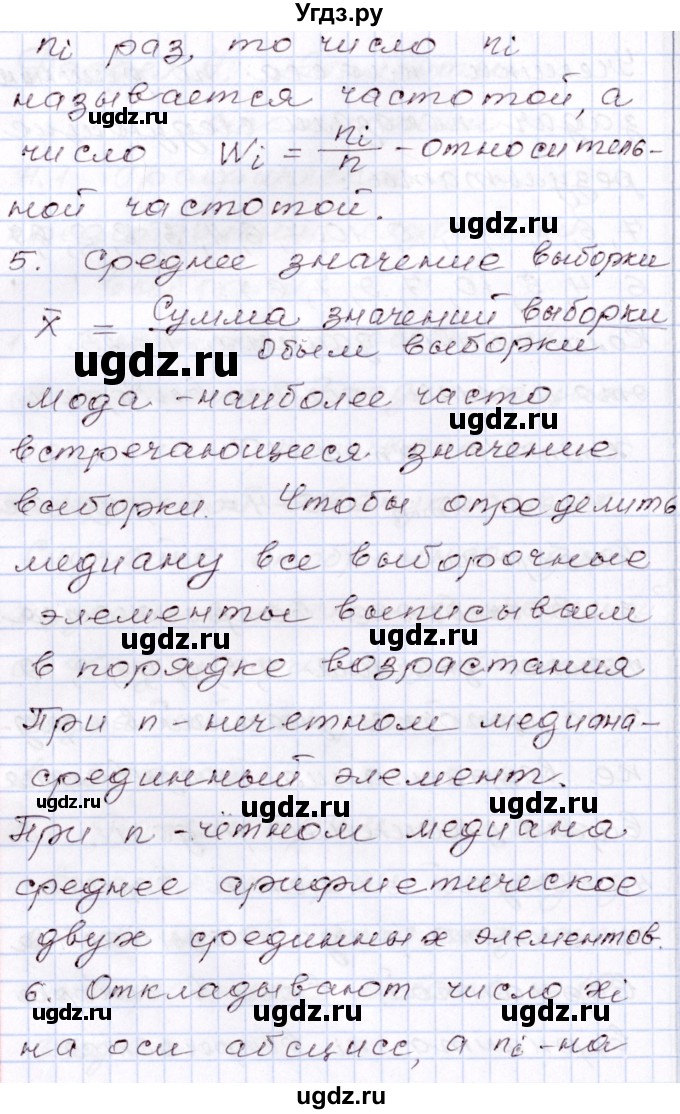 Угдз.ру
ni раз, то число ni
называется частотой, а
число Wi = ni/n - относитель-
ной частотой.
5. Среднее значение выборки
x̄ = Сумма значений выборки / Обьем выборки
Мода - наиболее часто
встречающееся значение
выборки. Чтобы определить
медиану все выборочные
элементы выписываем
в порядке возрастания
При n - нечетном медиана-
срединный элемент.
При n - чётном медиана
среднее арифметическое
двух срединных элементов.
6. Откладывают число xi
на оси абсцисс, а ni - на
ugdz.ru
ugdz.ru
ugdz.ru
ugdz.ru
ugdz.ru
ugdz.ru
ugdz.ru
ugdz.ru
ugdz.ru
ugdz.ru
ugdz.ru
ugdz.ru
ugdz.ru
ugdz.ru